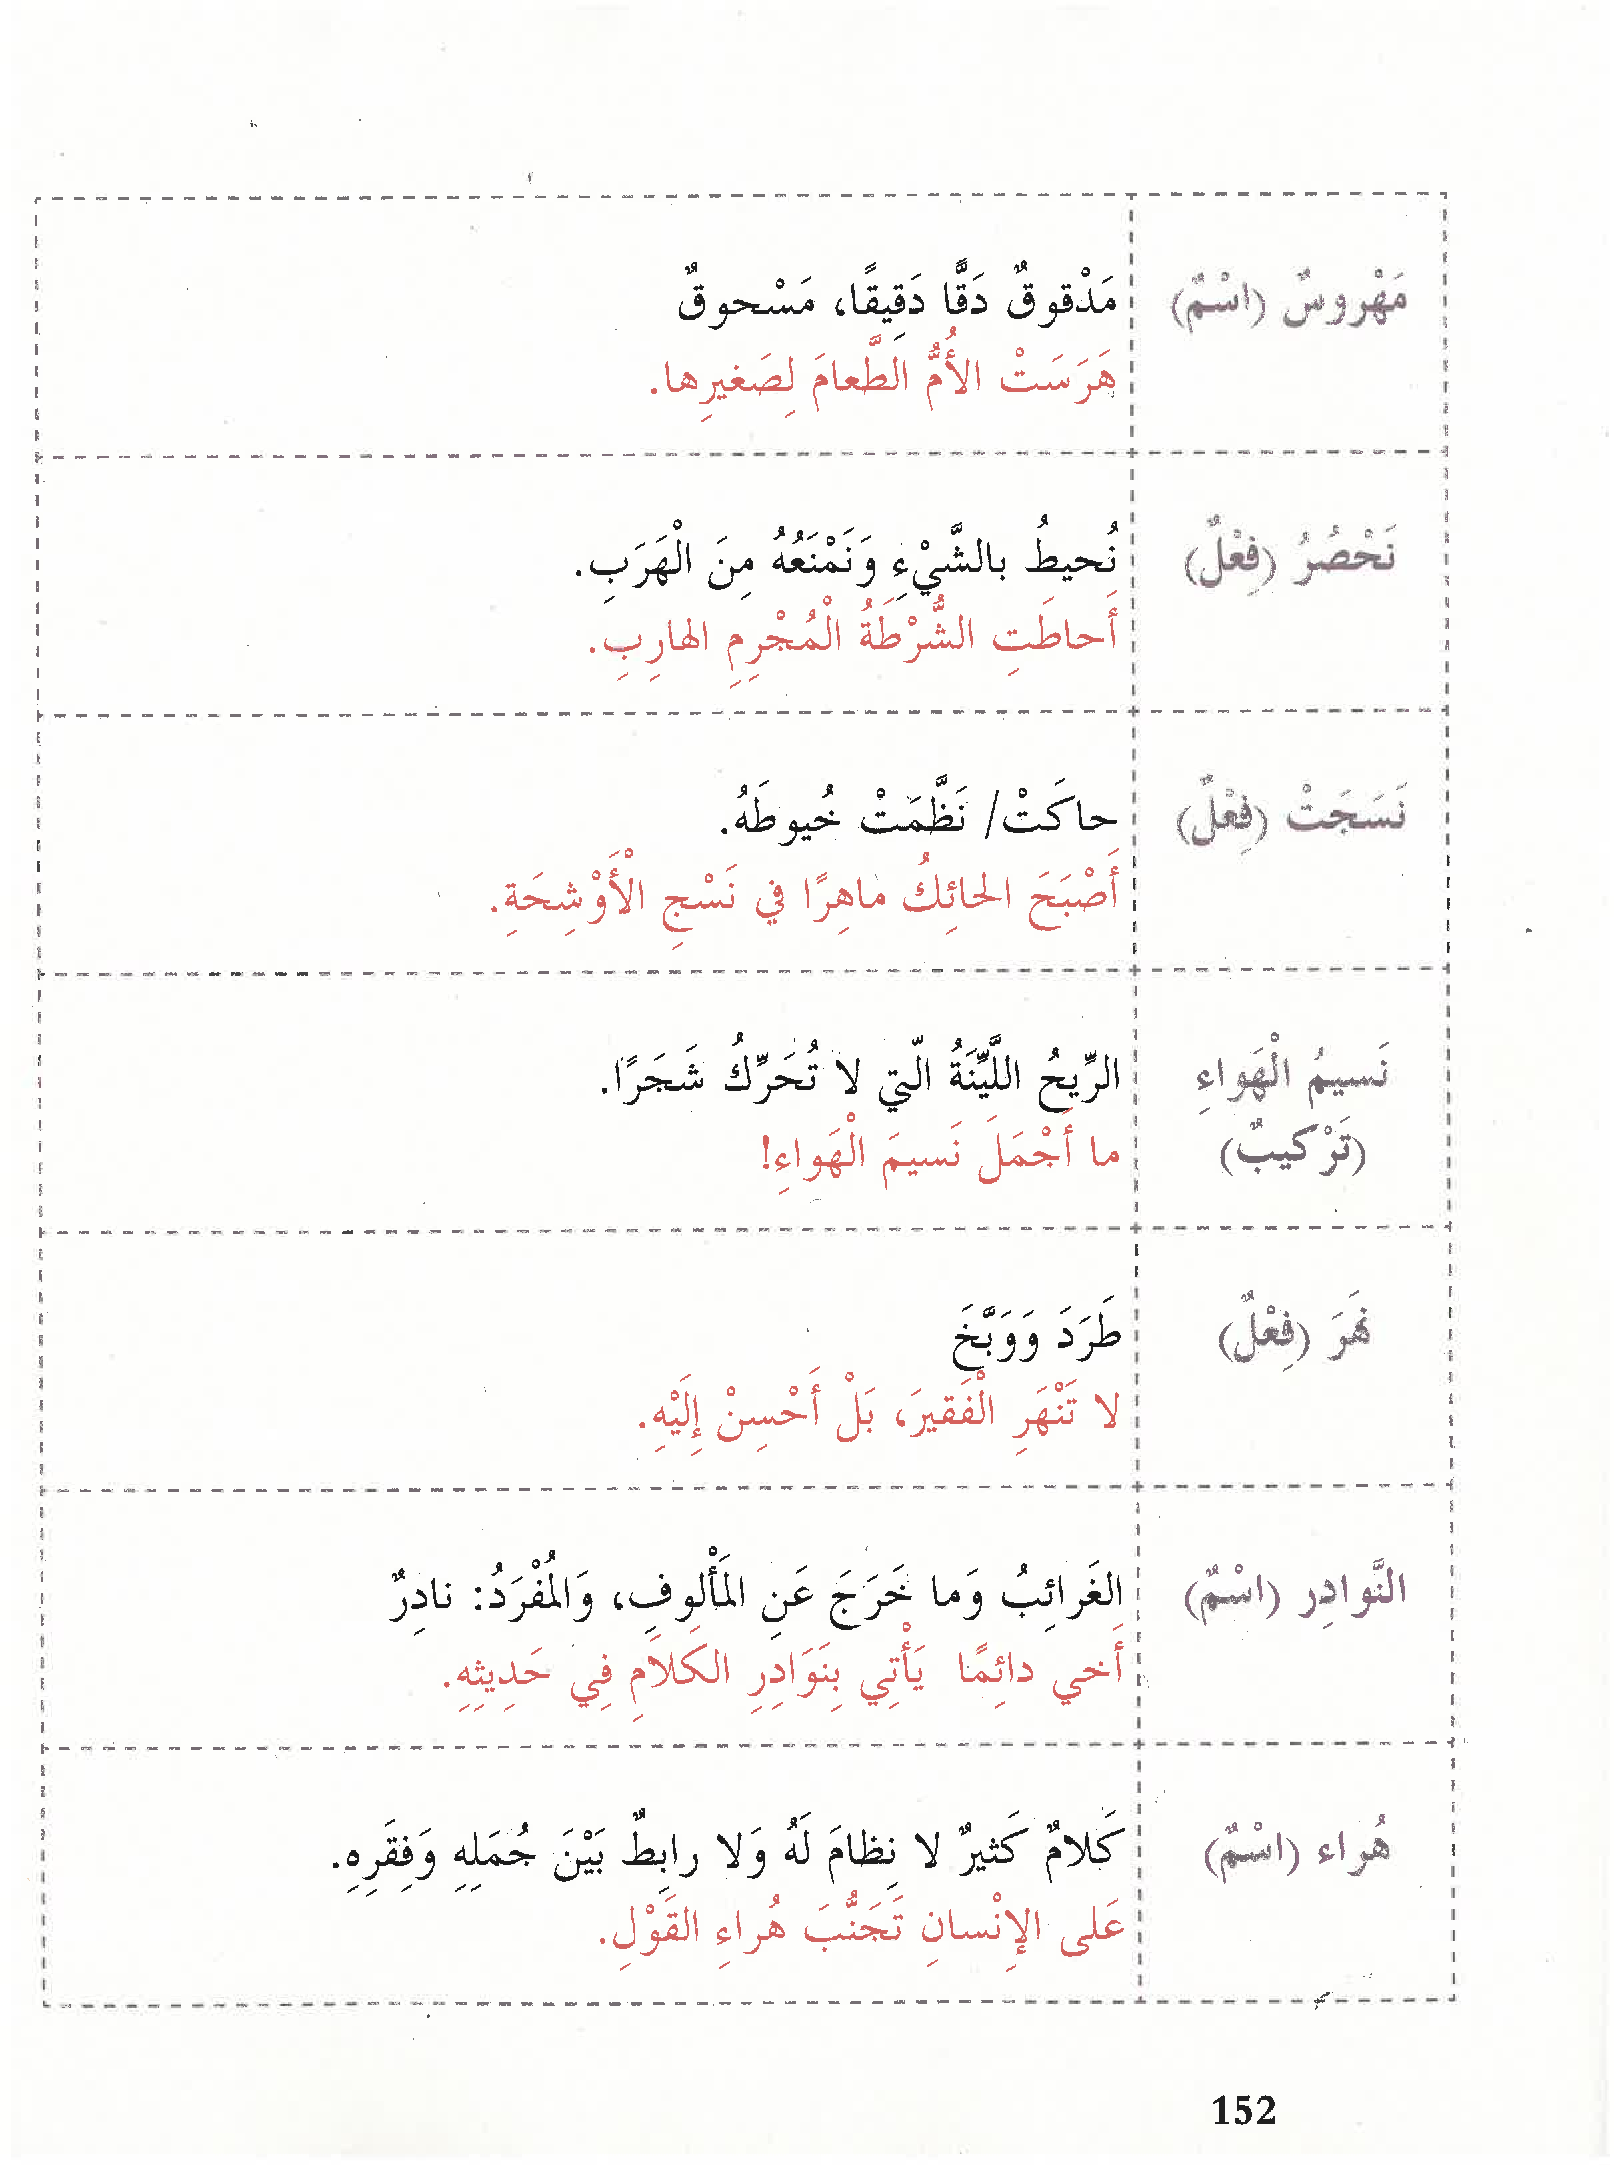 مَهْروسٌ (اسْمٌ)
مَدْقوقٌ دَقًّا دَقيقًا، مَسْحوقٌ
هَرَسَتْ الأُمُّ الطَّعامَ لِصَغيرِها.
نَحْصُرُ (فِعْلٌ)
نُحيطُ بالشَّيْءِ وَنَمْنَعُهُ مِنَ الْهَرَبِ.
أَحاطَتِ الشُّرْطَةُ الْمُجْرِمِ الهارِبِ.
نَسَجَتْ (فِعْلٌ)
حاكَتْ/ نَظَّمَتْ خُيوطَهُ.
أَصْبَحَ الحائِكُ ماهِرًا في نَسْجِ الْأَوْشِحَةِ.
نَسيمُ الْهَواءِ
(تَرْكيبٌ)
الرِّيحُ اللَّيِّنَةُ الّتي لا تُحَرِّكُ شَجَرًا.
ما أَجْمَلَ نَسيمَ الْهَواءِ!
نَهَرَ (فِعْلٌ)
طَرَدَ وَوَبَّخَ
لا تَنْهَرِ الْفَقيرَ، بَلْ أَحْسِنْ إِلَيْهِ.
النَّوادِر (اسْمٌ)
الغَرائِبُ وَما خَرَجَ عَنِ المَأْلوفِ، وَالمُفْرَدُ: نادِرٌ
أَخي دائِمًا يَأْتِي بِنَوَادِرِ الكَلَامِ فِي حَدِيثِهِ.
هُراء (اسْمٌ)
كَلامٌ كَثيرٌ لا نِظامَ لَهُ وَلا رابِطٌ بَيْنَ جُمَلِهِ وَفِقَرِهِ.
عَلى الإِنْسانِ تَجَنُّبَ هُراءِ القَوْلِ.
152